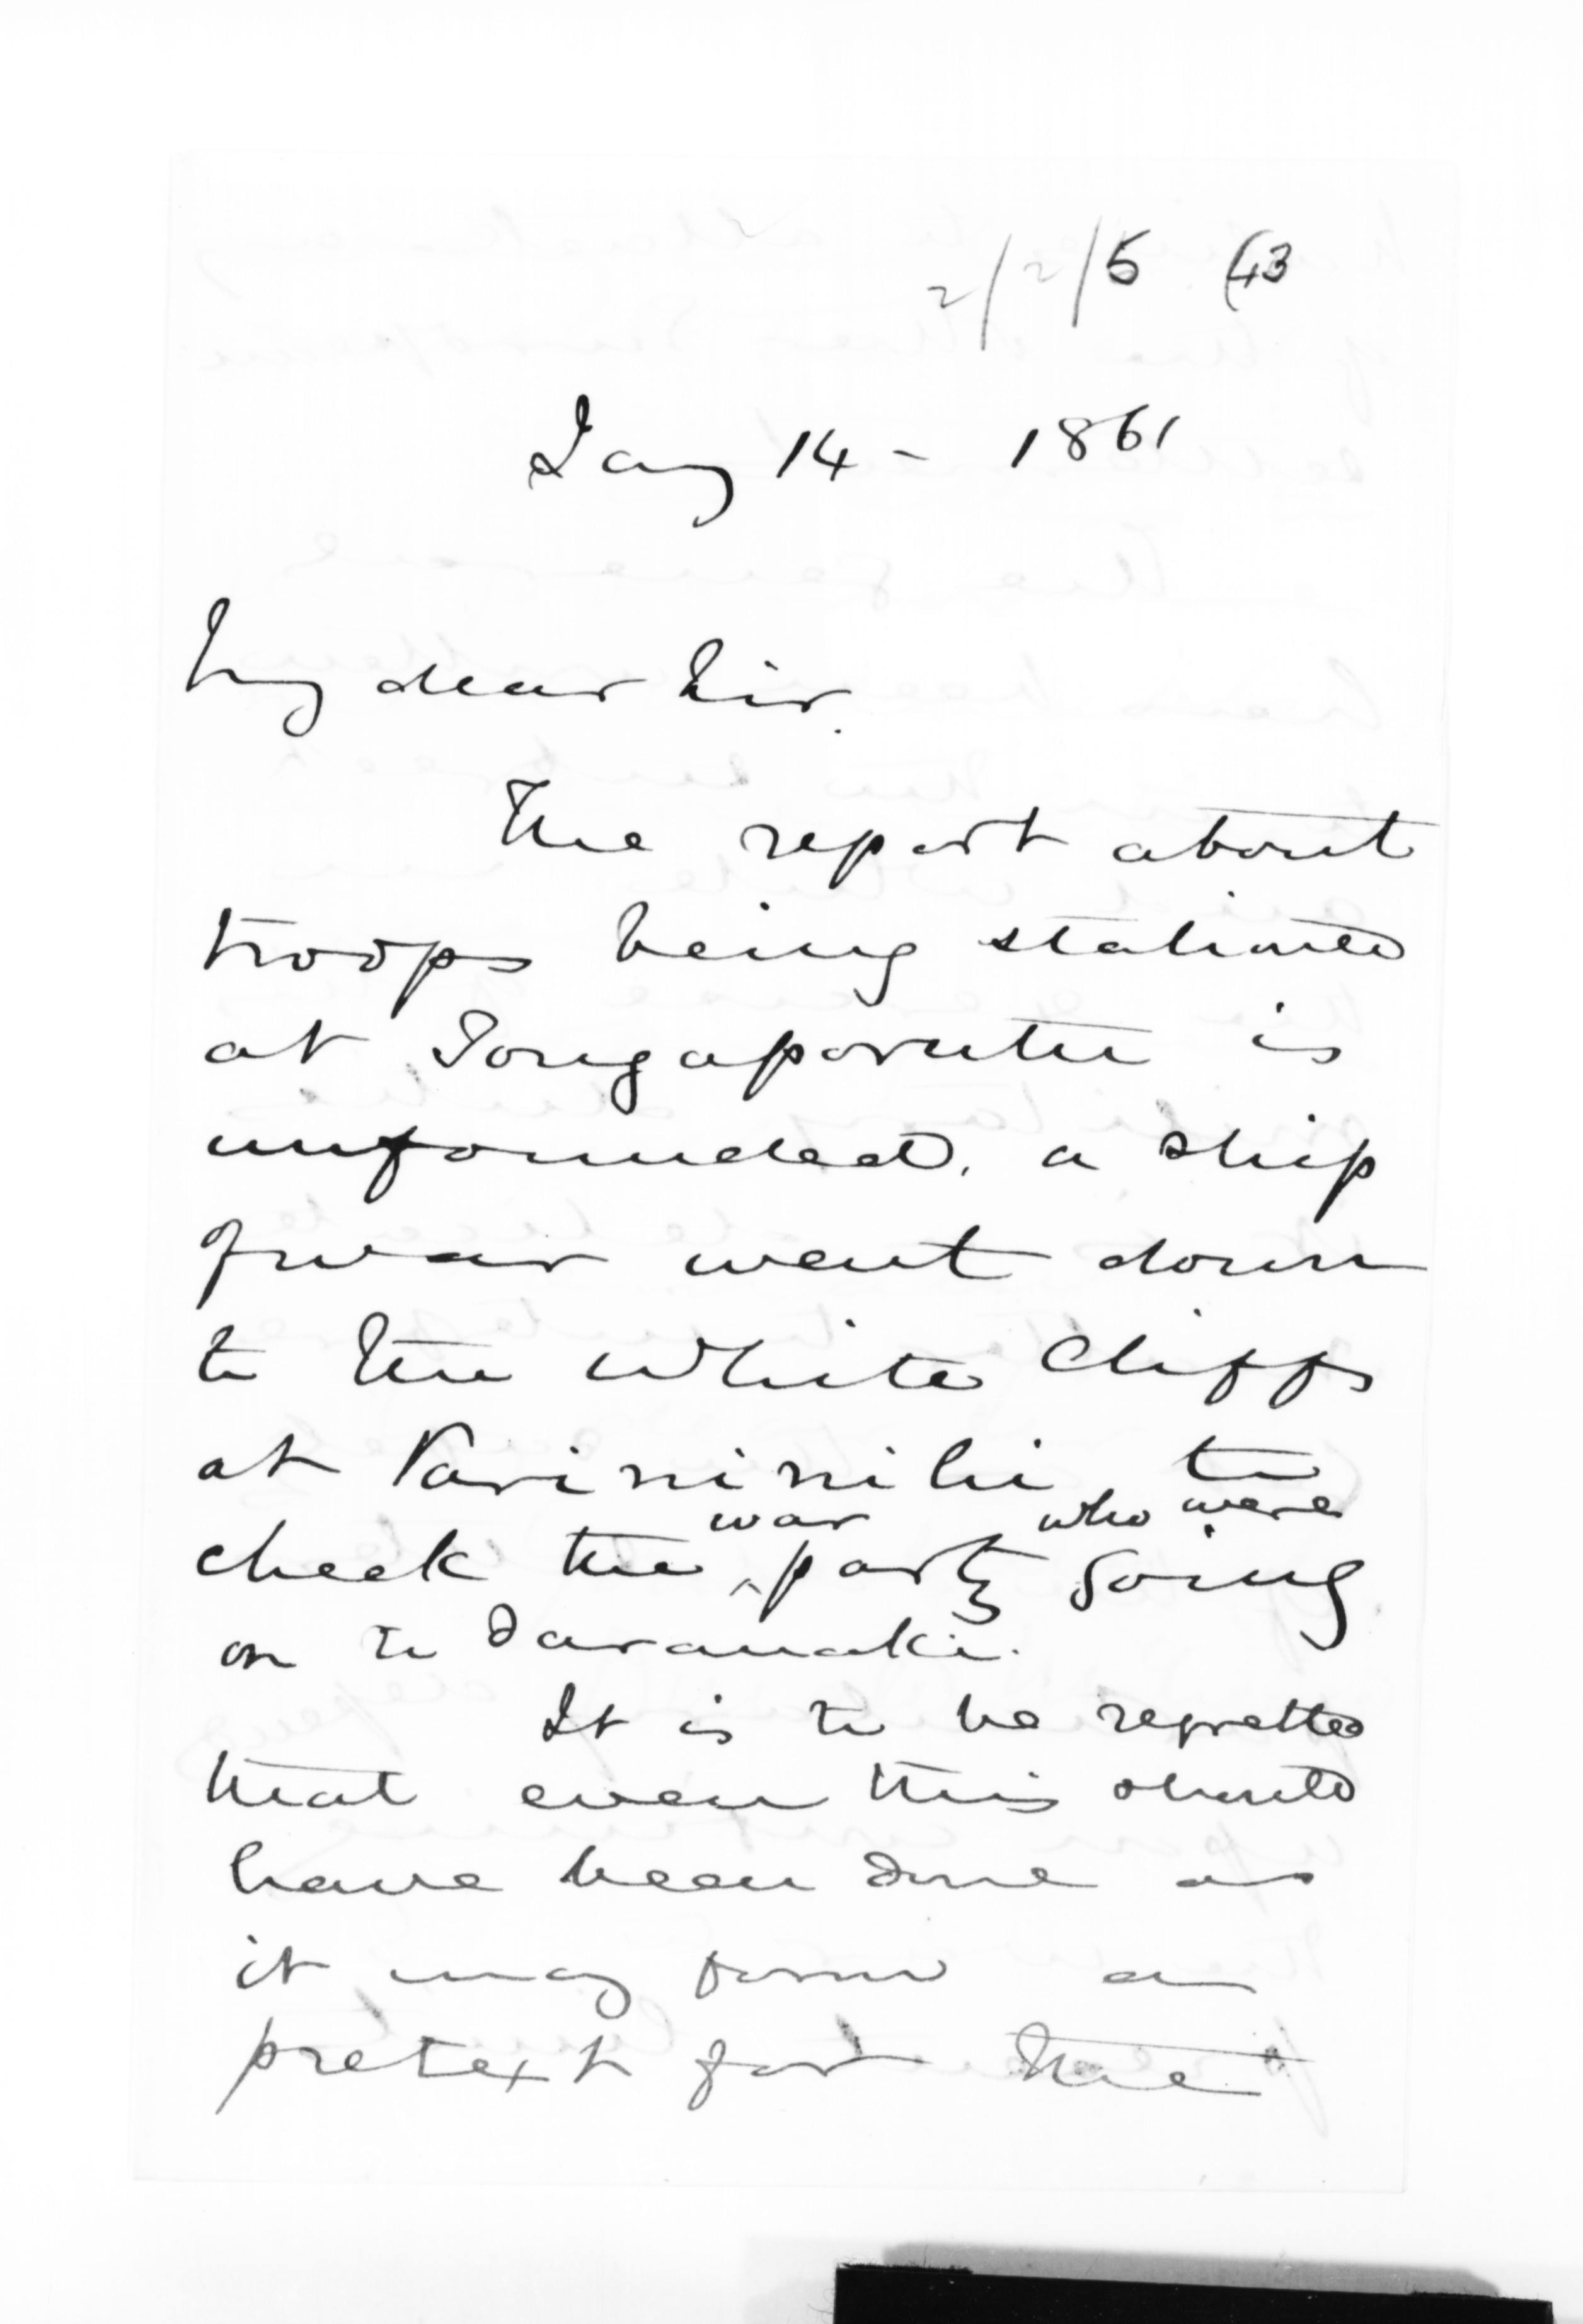 2/2/5 (43
Jany 14 - 1861
My dear Sir.
The report about
troops being stationed
at Tongaporutu is
unfounded, a ship
of war went down
to the White Cliffs
at Parininihi to
check the war party who were going
on to Taranaki.
It is to be regretted
that even this should
have been done as
it may form a
pretext for the